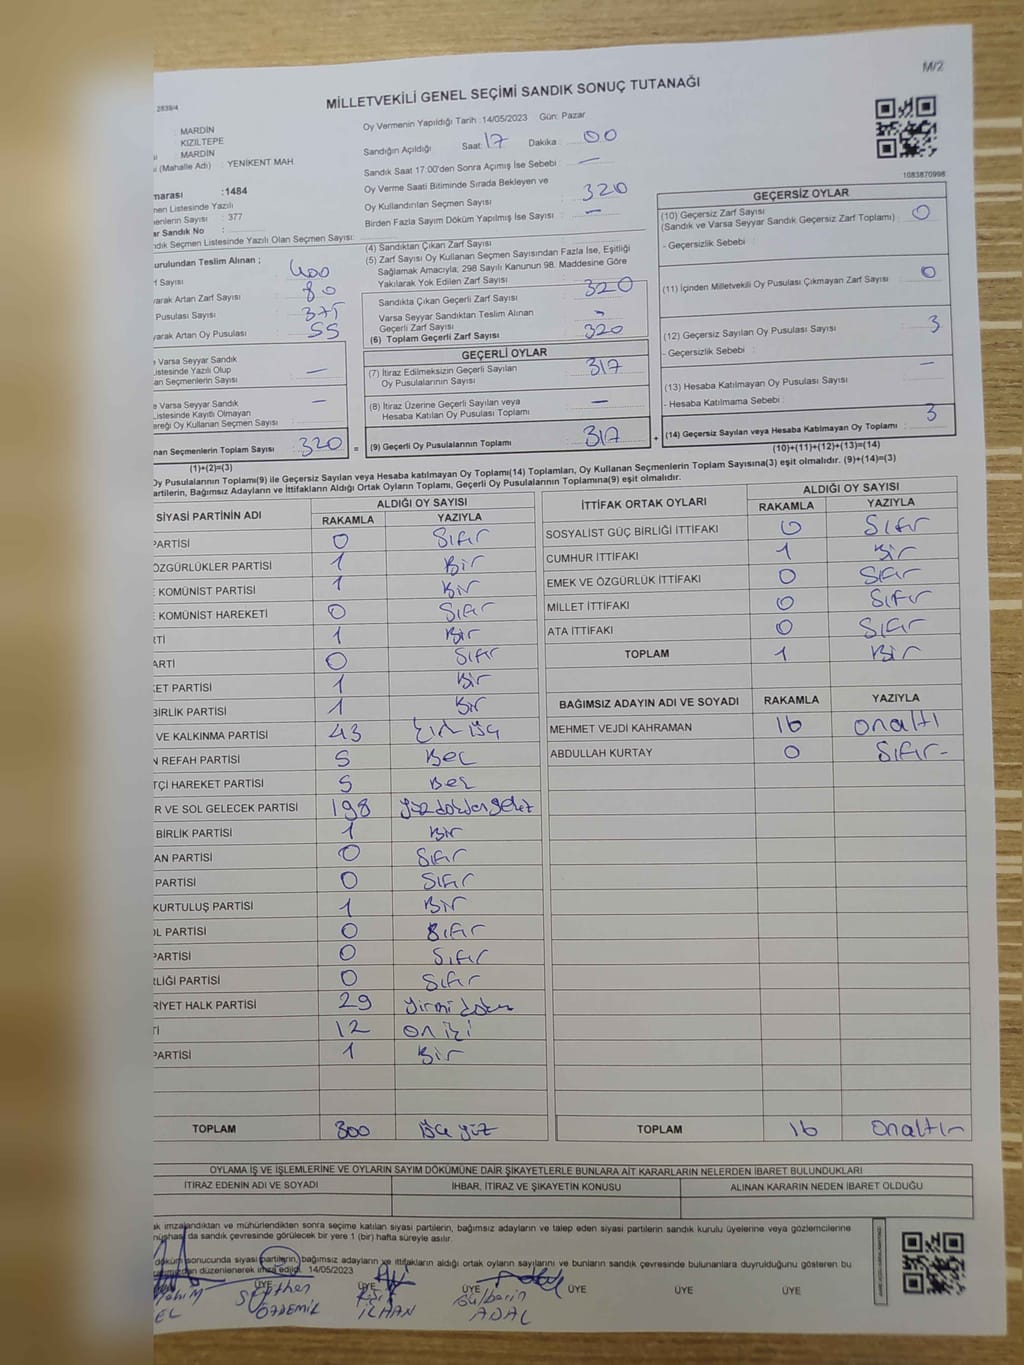 M/2
2839/4
MİLLETVEKİLİ GENEL SEÇİMİ SANDIK SONUÇ TUTANAĞI
: MARDİN
KIZILTEPE
: MARDİN
(Mahalle Adı) : YENİKENT MAH
Oy Vermenin Yapıldığı Tarih :14/05/2023 Gün: Pazar
Sandığın Açıldığı Saat: 17 Dakika : 00
Sandık Saat 17.00'den Sonra Açımış İse Sebebi : —
Oy Verme Saati Bitiminde Sırada Bekleyen ve
Oy Kullandırılan Seçmen Sayısı : 320
Birden Fazla Sayım Döküm Yapılmış İse Sayısı : —
1083870998
marası :1484
nen Listesinde Yazılı
enlerin Sayısı : 377
ar Sandık No :
ndık Seçmen Listesinde Yazılı Olan Seçmen Sayısı:
urulundan Teslim Alınan ;
f Sayısı : 400
arak Artan Zarf Sayısı : 80
Pusulası Sayısı : 375
yarak Artan Oy Pusulası : 55
e Varsa Seyyar Sandık
istesinde Yazılı Olup
an Seçmenlerin Sayısı : —
e Varsa Seyyar Sandık
Listesinde Kayıtlı Olmayan
ereği Oy Kullanan Seçmen Sayısı : —
nan Seçmenlerin Toplam Sayısı : 320
(1)+(2)=(3)
(4) Sandıktan Çıkan Zarf Sayısı :
(5) Zarf Sayısı Oy Kullanan Seçmen Sayısından Fazla İse, Eşitliği
Sağlamak Amacıyla; 298 Sayılı Kanunun 98. Maddesine Göre
Yakılarak Yok Edilen Zarf Sayısı :
Sandıkta Çıkan Geçerli Zarf Sayısı : 320
Varsa Seyyar Sandıktan Teslim Alınan
Geçerli Zarf Sayısı : -
(6) Toplam Geçerli Zarf Sayısı : 320
GEÇERLİ OYLAR
(7) İtiraz Edilmeksizin Geçerli Sayılan
Oy Pusulalarının Sayısı : 317
(8) İtiraz Üzerine Geçerli Sayılan veya
Hesaba Katılan Oy Pusulası Toplamı : —
= (9) Geçerli Oy Pusulalarının Toplamı : 317 +
GEÇERSİZ OYLAR
(10) Geçersiz Zarf Sayısı
(Sandık ve Varsa Seyyar Sandık Geçersiz Zarf Toplamı) : 0
- Geçersizlik Sebebi :
(11) İçinden Milletvekili Oy Pusulası Çıkmayan Zarf Sayısı : 0
(12) Geçersiz Sayılan Oy Pusulası Sayısı : 3
- Geçersizlik Sebebi :
(13) Hesaba Katılmayan Oy Pusulası Sayısı : —
- Hesaba Katılmama Sebebi :
(14) Geçersiz Sayılan veya Hesaba Katılmayan Oy Toplamı : 3
(10)+(11)+(12)+(13)=(14)
Oy Pusulalarının Toplamı(9) ile Geçersiz Sayılan veya Hesaba katılmayan Oy Toplamı(14) Toplamları, Oy Kullanan Seçmenlerin Toplam Sayısına(3) eşit olmalıdır. (9)+(14)=(3)
artilerin, Bağımsız Adayların ve İttifakların Aldığı Ortak Oyların Toplamı, Geçerli Oy Pusulalarının Toplamına(9) eşit olmalıdır.
SİYASİ PARTİNİN ADI ALDIĞI OY SAYISI
RAKAMLA YAZIYLA
PARTİSİ 0 Sıfır
ÖZGÜRLÜKLER PARTİSİ 1 Bir
KOMÜNİST PARTİSİ 1 Bir
KOMÜNİST HAREKETİ 0 Sıfır
RTİ 1 Bir
ARTİ 0 Sıfır
ET PARTİSİ 1 Bir
BİRLİK PARTİSİ 1 Bir
VE KALKINMA PARTİSİ 43
N REFAH PARTİSİ 5 Beş
TÇİ HAREKET PARTİSİ 5 Beş
R VE SOL GELECEK PARTİSİ 198
BİRLİK PARTİSİ 1 Bir
AN PARTİSİ 0 Sıfır
PARTİSİ 0 Sıfır
KURTULUŞ PARTİSİ 1 Bir
OL PARTİSİ 0 Sıfır
PARTİSİ 0 Sıfır
RLİĞİ PARTİSİ 0 Sıfır
RİYET HALK PARTİSİ 29 yirmi dokuz
Tİ 12 on iki
PARTİSİ 1 Bir
TOPLAM 300 üç yüz
İTTİFAK ORTAK OYLARI ALDIĞI OY SAYISI
RAKAMLA YAZIYLA
SOSYALİST GÜÇ BİRLİĞİ İTTİFAKI 0 Sıfır
CUMHUR İTTİFAKI 1 Bir
EMEK VE ÖZGÜRLÜK İTTİFAKI 0 Sıfır
MİLLET İTTİFAKI 0 Sıfır
ATA İTTİFAKI 0 Sıfır
TOPLAM 1 Bir
BAĞIMSIZ ADAYIN ADI VE SOYADI RAKAMLA YAZIYLA
MEHMET VEJDİ KAHRAMAN 16 onaltı
ABDULLAH KURTAY 0 Sıfır
TOPLAM 16 onaltı
OYLAMA İŞ VE İŞLEMLERİNE VE OYLARIN SAYIM DÖKÜMÜNE DAİR ŞİKAYETLERLE BUNLARA AİT KARARLARIN NELERDEN İBARET BULUNDUKLARI
İTİRAZ EDENİN ADI VE SOYADI İHBAR, İTİRAZ VE ŞİKAYETİN KONUSU ALINAN KARARIN NEDEN İBARET OLDUĞU
ak imzalandıktan ve mühürlendikten sonra seçime katılan siyasi partilerin, bağımsız adayların ve talep eden siyasi partilerin sandık kurulu üyelerine veya gözlemcilerine
nüshası da sandık çevresinde görülecek bir yere 1 (bir) hafta süreyle asılır.
döküm sonucunda siyasi partilerin, bağımsız adayların ve ittifakların aldığı ortak oyların sayılarını ve bunların sandık çevresinde bulunanlara duyrulduğunu gösteren bu
düzenlenerek imza edildi. 14/05/2023
ÜYE ÜYE ÜYE ÜYE ÜYE ÜYE
EL ÖZDEMİR İLHAN Gülbarin ADAL